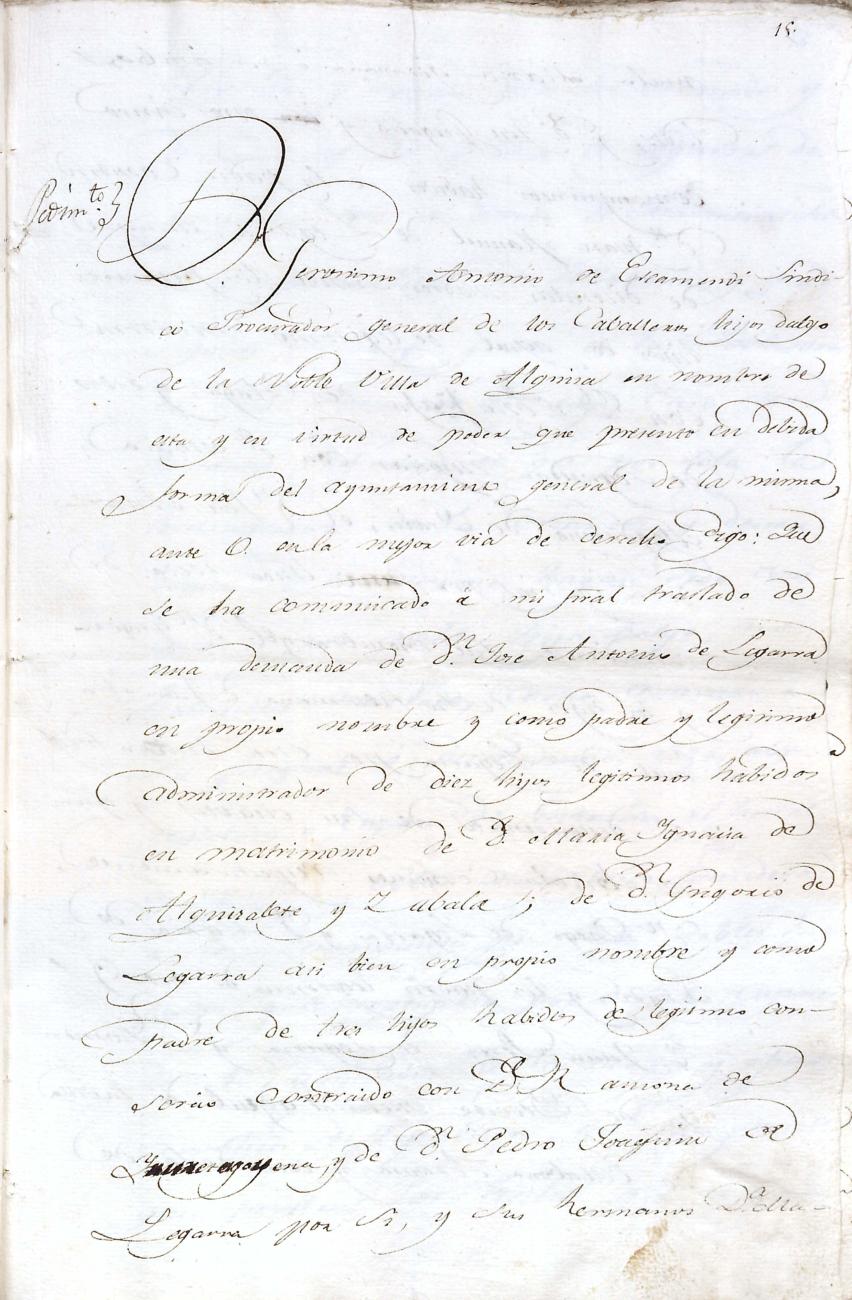 15.
Pedim.to
D.n Jeronimo Antonio de Escamendi Sindi-
co Procurador general de los Caballeros hijos dalgo
de la Noble Villa de Alquiza en nombre de
esta y en virtud de poder que presento en debida
forma del ayuntamiento general de la misma,
ante V. en la mejor via de derecho digo: Que
se ha comunicado á mi pral traslado de
una demanda de D.n Jose Antonio de Legarra
en propio nombre y como padre y legitimo
administrador de diez hijos legitimos habidos
en matrimonio de D.a Maria Ignacia de
Alquizalete y Zubala; de D.n Gregorio de
Legarra asi bien en propio nombre y como
padre de tres hijos habidos de legitimo con-
sorcio contraido con D.a Ramona de
y de D.n Pedro Joaquin de
Legarra por si, y sus hermanos D.a Ma-